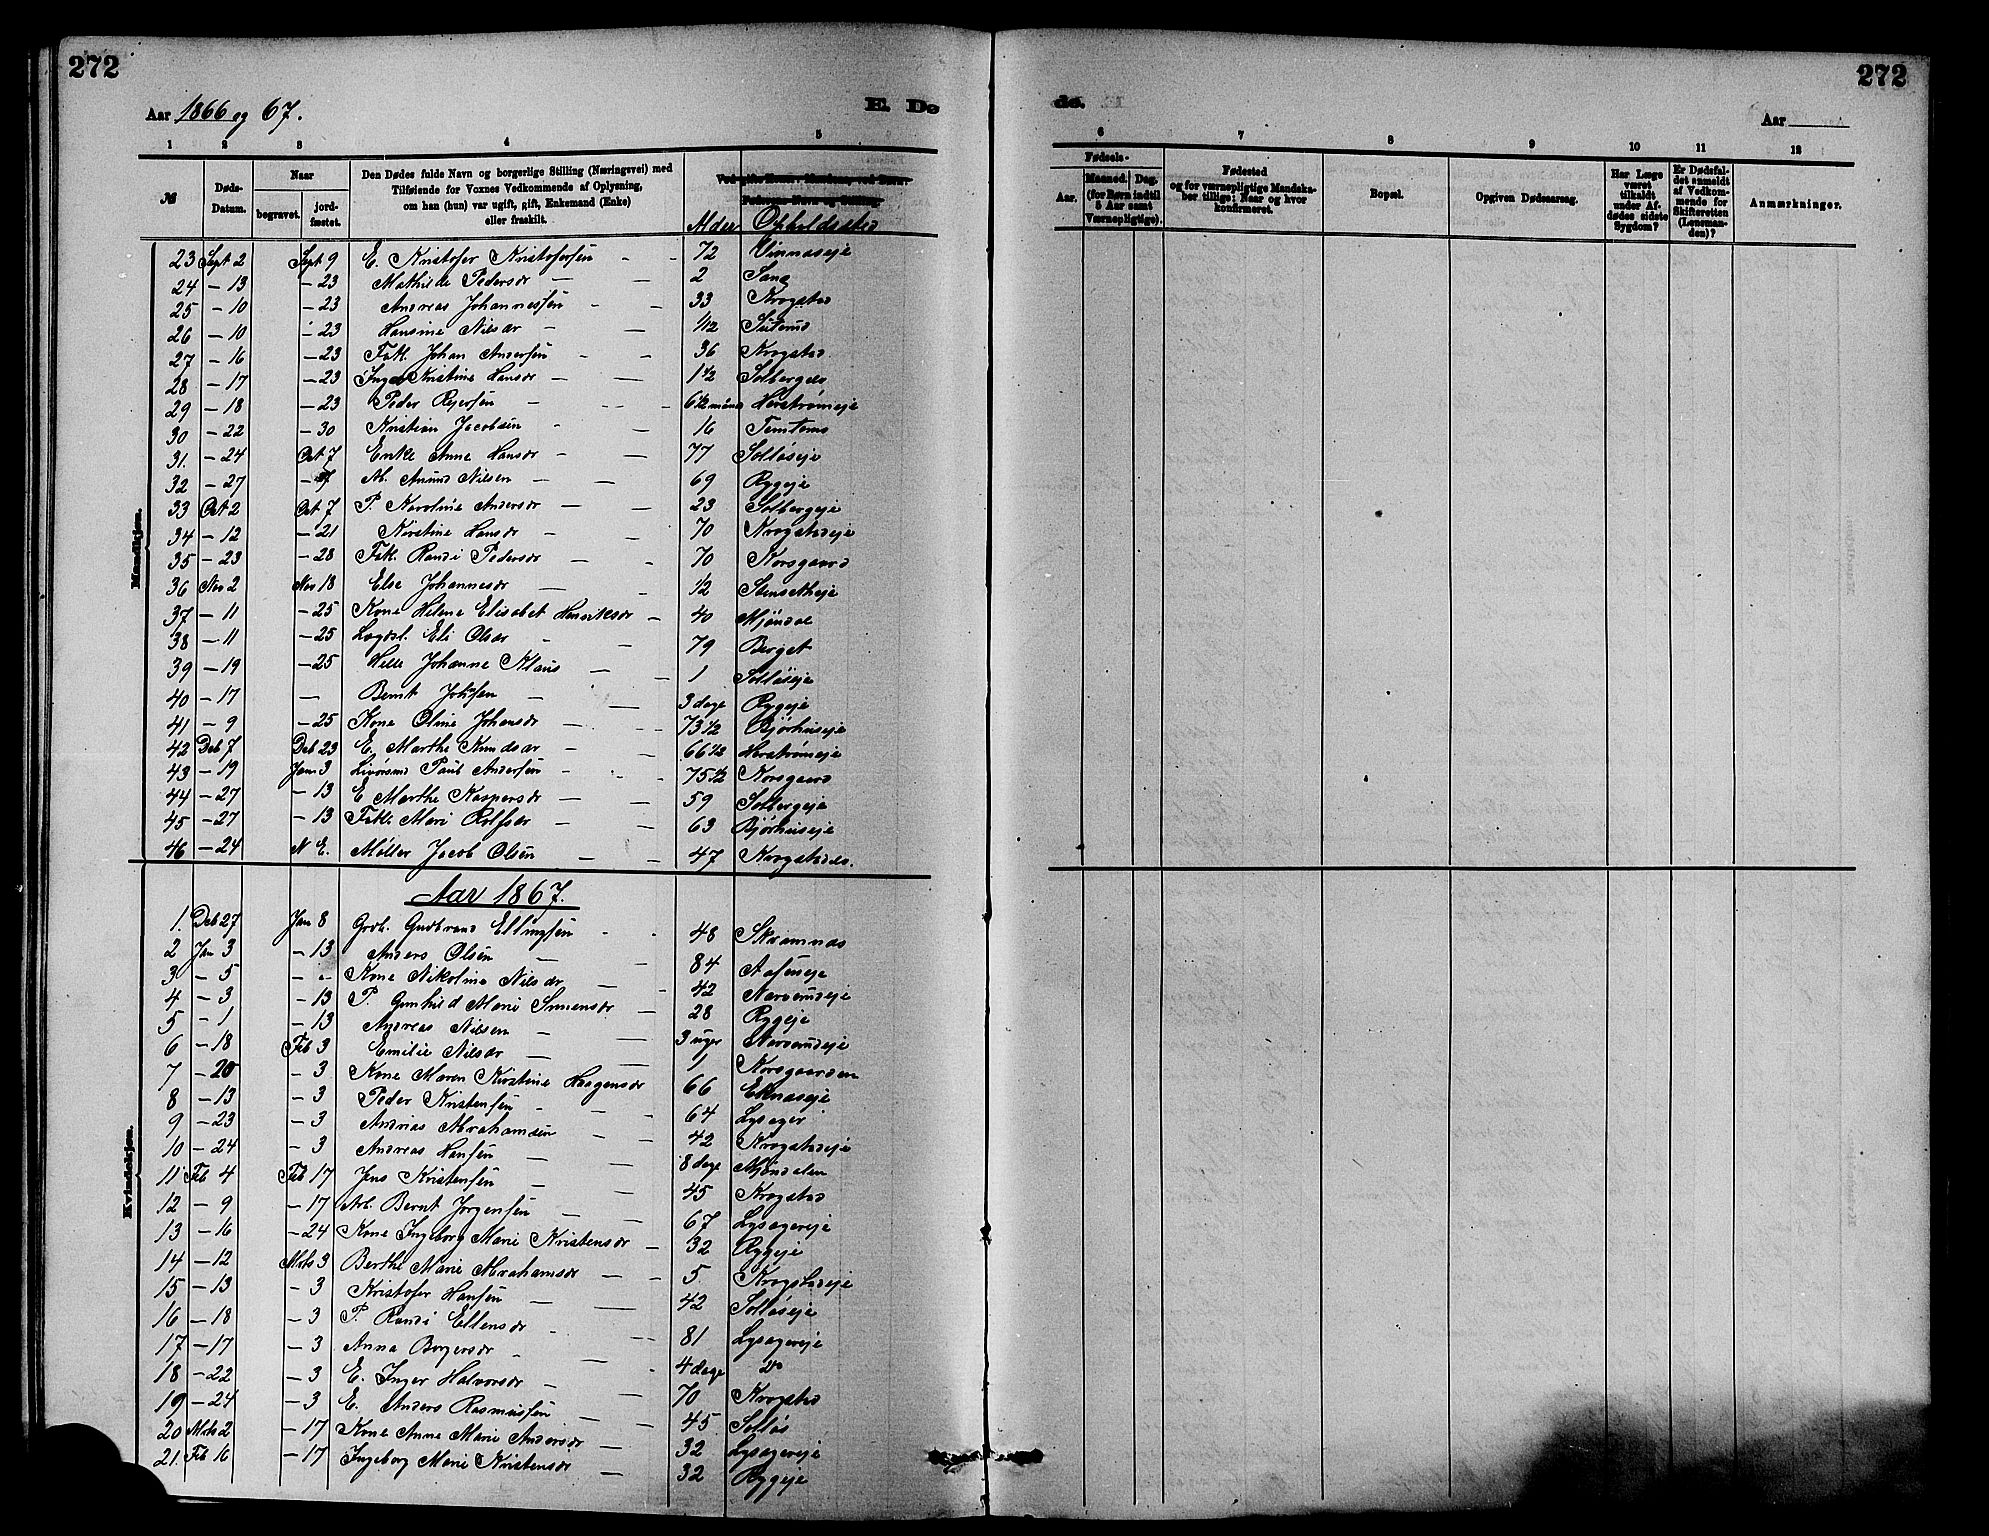 272
272
Aar 1866 og 67.
E. Dø
de.
Aar
1 2 3 4 5
6 7 8 9 10 11 12
№
Døds-Datum.
Naar
begravet.
jord-fæstet.
Den Dødes fulde Navn og borgerlige Stilling (Næringsvei) med
Tilføiende for Voxnes Vedkommende af Oplysning,
om han (hun) var ugift, gift, Enkemand (Enke)
eller fraskilt.
Alder
Opholdssted
Fødsels-
Aar.
Maaned. Dag.
(for Børn indtil
5 Aar samt
Værnepligtige).
Fødested
og for værnepligtige Mandska-
ber tillige: Naar og hvor
konfirmeret.
Bopæl.
Opgiven Dødsaarsag.
Har Læge
været
tilkaldt
under Af-
dødes sidste
Sygdom?
Er Dødsfal-
det anmeldt
af Vedkom-
mende for
Skifteretten
(Lensman-
den)?
Anmærkninger.
Mandkjøn.
23 Sept 2 Sept 9 E. Kristofer Kristofersen 72 Vinnaseje
24 – 13 – 23 Mathilde Pedersdr 2 Sand
25 – 10 – 23 Andreas Johannessen 33 Krogstad
26 – 10 – 23 Hansine Nilsdr 1/12
27 – 16 – 23 Fatt. Johan Andersen 36 Krogstad.
28 – 17 – 23 Inger Kristine Hansdr 1 1/2 Solbergeje
29 – 18 – 23 Peder Rejersen 6 1/2 måned Herstrømeje
30 – 22 – 30 Kristian Jacobsen 16
31. – 24 Oct 7 Enke Anne Hansdr 77 Solløseje
32 – 27 – 7 Anund Nilsen 69 Ryggeje
33 Oct 2 Oct 7 P. Karoline Andersdr 23 Solbergeje
34 – 12 – 21 Kirstine Hansdr 70 Krogstadeje
35 – 23 – 28 Fatt. Randi Pedersdr 70 Korsgaard
36 Nov 2 Nov 18 Else Johannesdr 1/2 Stensetheje
37 – 11 – 25 Kone Helene Elisabet Henriksdr 40 Mjøndal
38 – 11 – 25 Lægdsl. Eli Olsdr 79 Berget
39 – 19 – 25 Helle Johanne Klaus 1 Solløseje
40 – 17 – Bernt Johsen 3 dage Ryggeje
41 – 9 – 25 Kone Oline Johansdr 73 1/2 Bjørhuseje
42 Deb 7 Deb 23 E. Marthe Knudsdr 66 1/2 Herstrømeje
43 – 19 Jan 3 Paul Andersen 75 1/2 Korsgaard
44 – 27 – 13 E Marthe Kaspersdr 59 Solbergeje
45 – 27 – 13 Fatt. Mari Rolfsdr 63 Bjørhuseje
46 – 24 N E. Møller Jacob Olsen 47 Krogstadeje.
Aar 1867.
Kvindekjøn.
1. Deb 27 Jan 8 Grdb. Gudbrand Ellingsen 48 Skramnæs
2 Jan 3 – 13 Anders Olsen 84 Aaseneje
3 – 5 – – Kone Nikoline Nilsdr 42 Narverudeje
4 – 3 – 13 P. Gunhild Marie Simensdr 28 Ryggeje
5 – 1 – 13 Andreas Nilsen 3 uger Narverudeje
6 – 18 Feb 3 Emilie Nilsdr 1 Korsgaarden
7 – 20 – 3 Kone Maren Kirstine Haagensdr 66 Eknaseje
8 – 13 – 3 Peder Kristensen 64 Lysager
9 – 23 – 3 Andrias Abrahamsen 42 Krogstadeje
10 – 24 – 3 Andreas Hansen 8 dage Mjøndalen
11 Feb 4 Feb 17 Jens Kristensen 45 Krogstad
12 – 9 – 17 Arb. Bernt Jørgensen 67 Lysagereje
13 – 16 – 24 Kone Ingeborg Marie Kristensdr 32 Ryggeje
14 – 12 Mrts 3 Berthe Marie Abrahamsdr 5 Krogstadeje
15 – 13 – 3 Kristofer Hansen 42 Solløseje
16 – 18 – 3 P. Randi Ellensdr 81 Lysagereje
17 – 17 – 3 Anna Borgersdr 4 dage Do
18 – 22 – 3 E. Inger Halvorsdr 70 Krogstad
19 – 24 – 3 E. Anders Rasmussen 45 Solløs
20 Mrts 2 – 17 Kone Anne Marie Andersdr 32 Lysagereje
21. Feb 16 – 17 Ingeborg Marie Kristensdr 32 Ryggeje